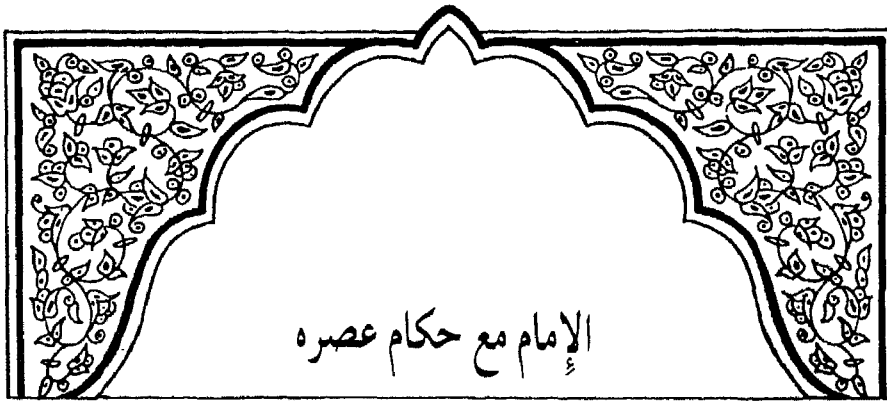 الإمام مع حكام عصره